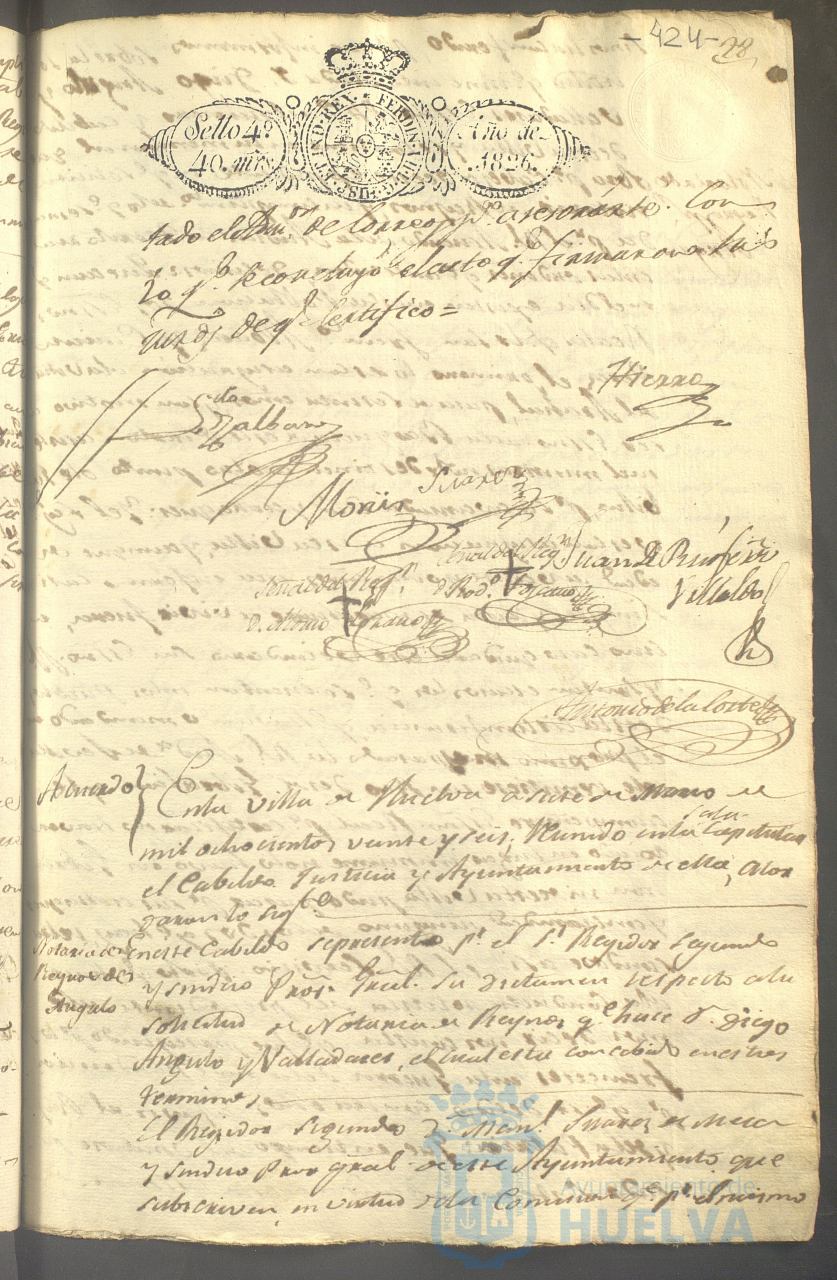 -424- 28,
Sello 4º
40. mrs.
HISP. ET IND. REX. FERDIN. VII. D. G.
Año de
1826.
tado el Admor. de Correos pª. asesorarse. Con
lo qe. se concluyó el acto qe. firmaron sus
mrds de qe. Certifico=
Hierro
Suarez
Señal del Regr.
Señal del
Dn. Antonio
Dn. Rodo.
Juan de
Antonio de la Corte
Acuerdo
En la villa de Huelva a siete de Marzo de
mil ochocientos veinte y seis, Reunido en la sala Capitular
el Cabildo Justicia y Ayuntamiento de ella, acor
daron lo sigte.
Notaria de
Reynos de
Angulo
En este Cabildo se presentó pr. el Sr. Regidor segundo
y sindico Pror. Gral. su dictamen respecto a la
solicitud de Notaria de Reynos qe. hace Dn. Diego
Angulo y Valladares, el cual esta concebido en estos
terminos
El Regidor segundo Dn. Manl. Suarez de
y sindico Pror. gral. de este Ayuntamiento que
subscriven, en virtud de la Comision qe. pr. el mismo
Ayuntamiento de
HUELVA